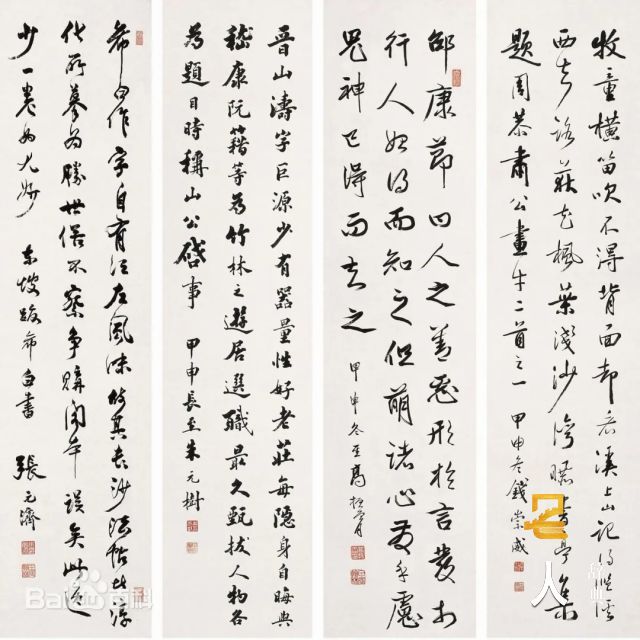 牧童橫笛吹不得背面却看溪上山記得從溪
西去路荻花楓葉淺沙灣 曝書亭集
題周恭肅公畫牛二首之一 甲申冬錢崇威
邵康節曰人之善惡形於言發於
行人始得而知之但萌諸心發乎慮
鬼神已得而知之 甲申冬至高振霄
晉山濤字巨源少有器量性好老莊每隱身自晦與
嵇康阮籍等為竹林之遊居選職最久甄拔人物各
為題目時稱山公啓事 甲申長至朱元樹
希白作字自有江左風味故其長沙法帖比淳
化所摹為勝世俗不察爭購閣本誤矣此逸
少一卷為尤妙 東坡跋希白書 張元濟
Baidu百科
人